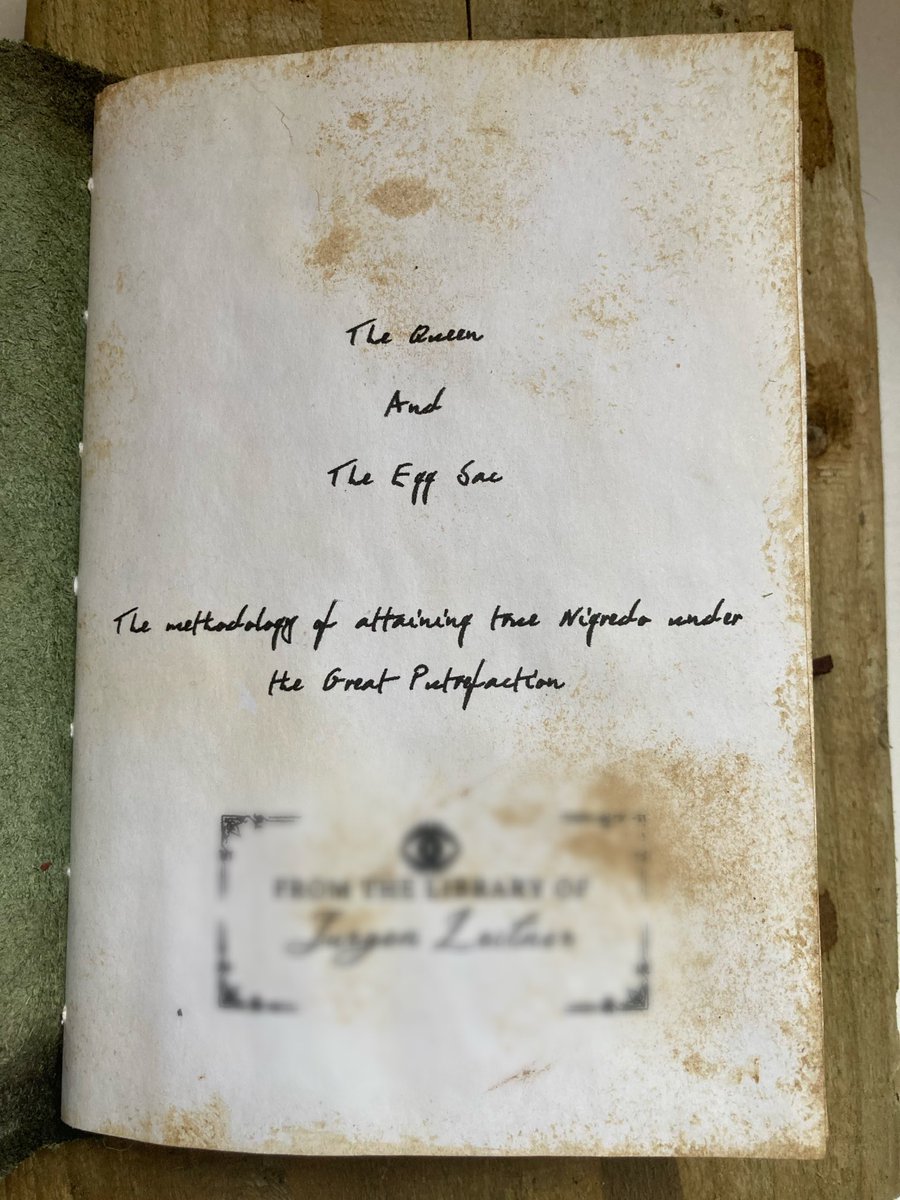 The Queen
And
The Egg Sac
The methodology of attaining true Nigredo under
the Great Putrefaction
FROM THE LIBRARY OF
Jurgen Leitner